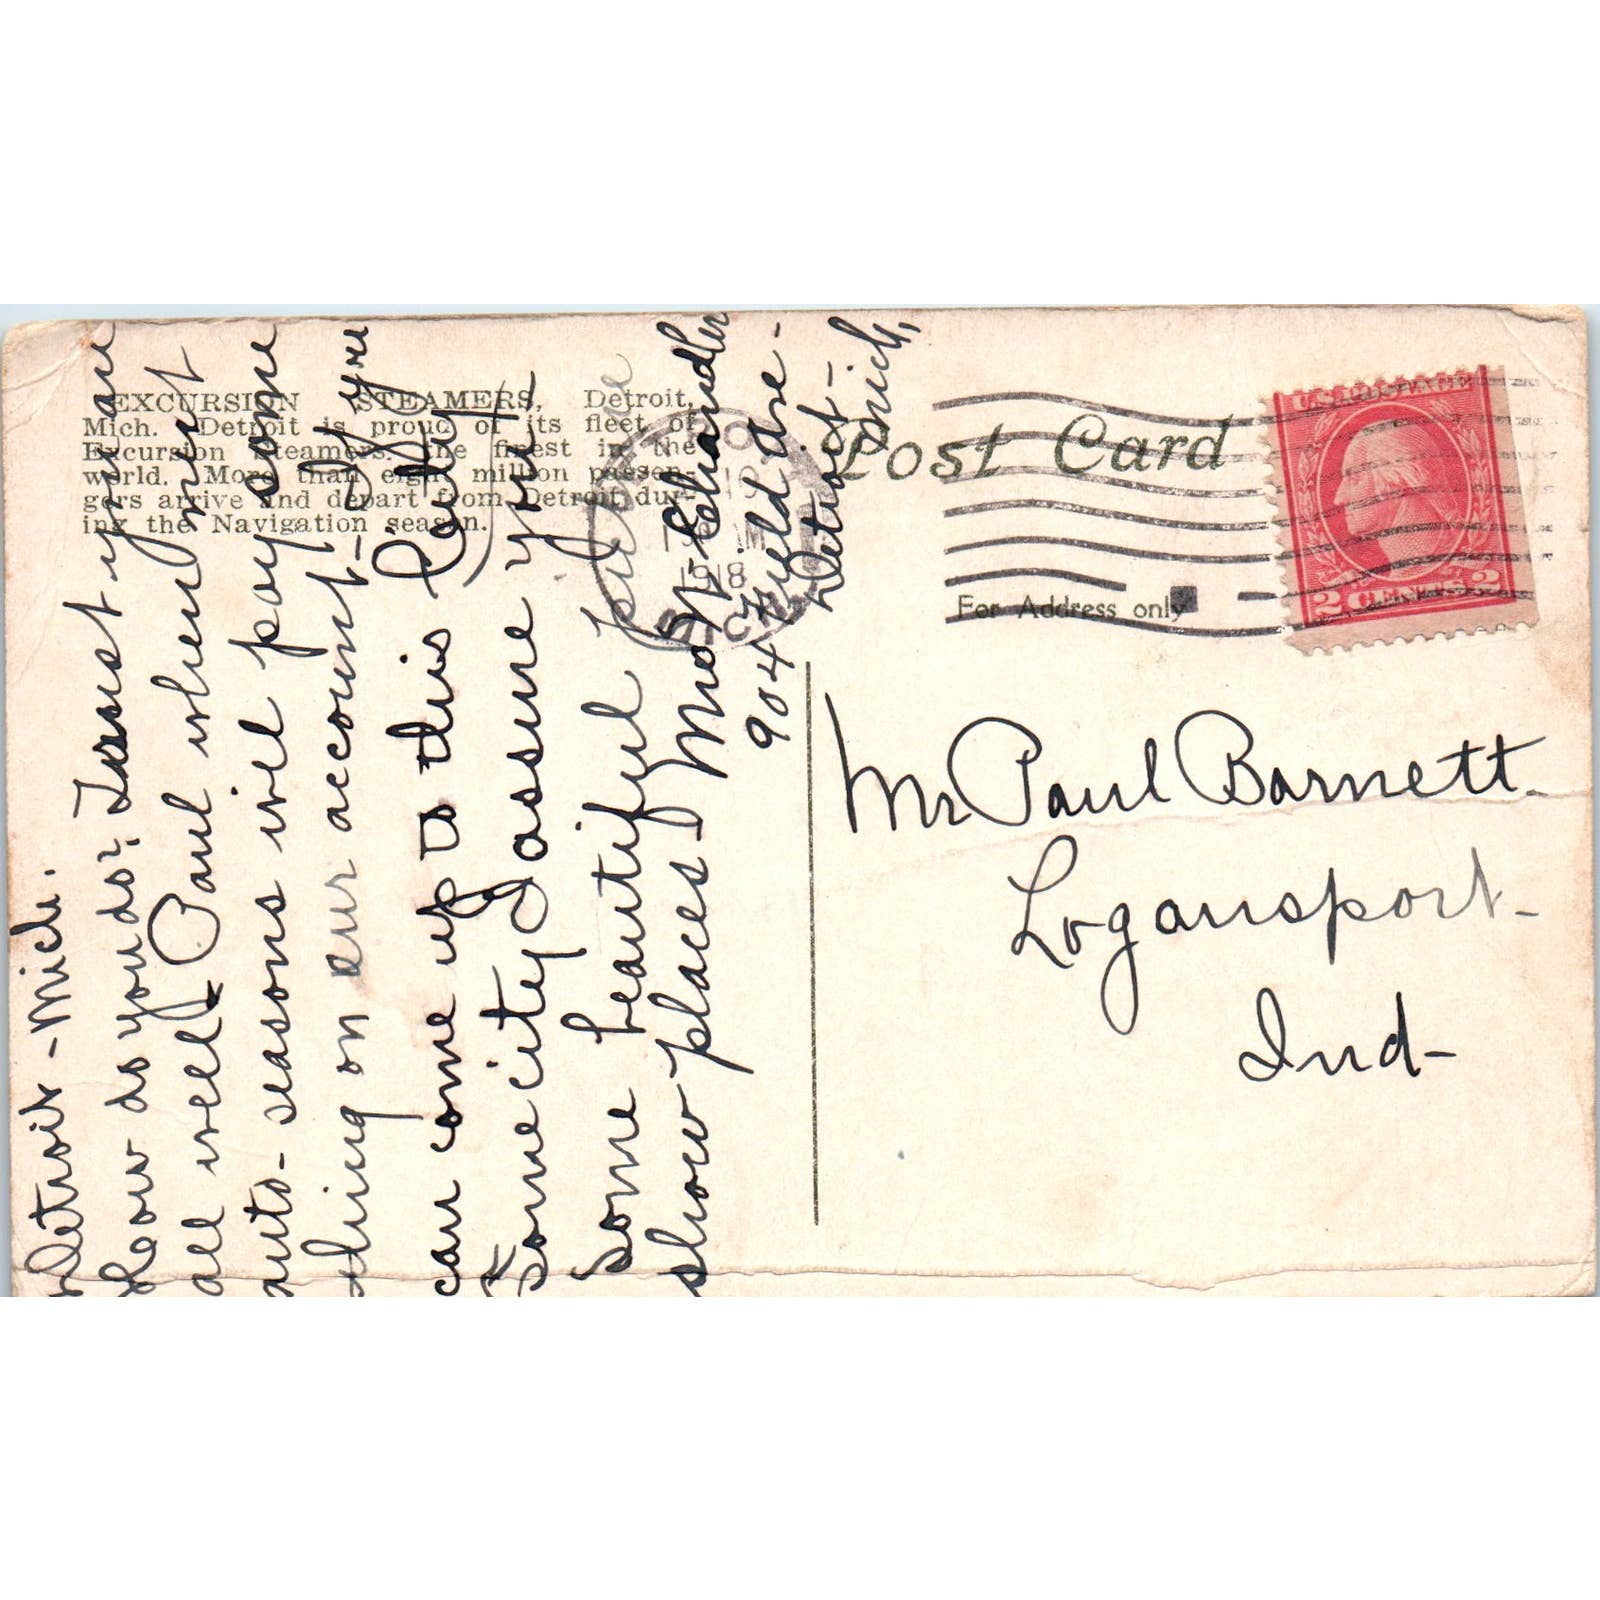 EXCURSION STEAMERS, Detroit,
Mich. Detroit is proud of its fleet of
Excursion Steamers, the finest in the
world. More than eight million passen-
gers arrive and depart from Detroit dur-
ing the Navigation season.
Detroit - Mich.
How do you do? Trust you are
all well - Paul when next
auto - seasons will pay some
on our account - if you
can come up to this City
Some city I assure you
Some beautiful picture
show places - Mrs. Chandler
904 Field ave -
Detroit -
Mich,
Post Card
For Address only
MICH
1918
U.S. POSTAGE
2 CENTS 2
Mr Paul Barnett.
Logansport -
Ind -